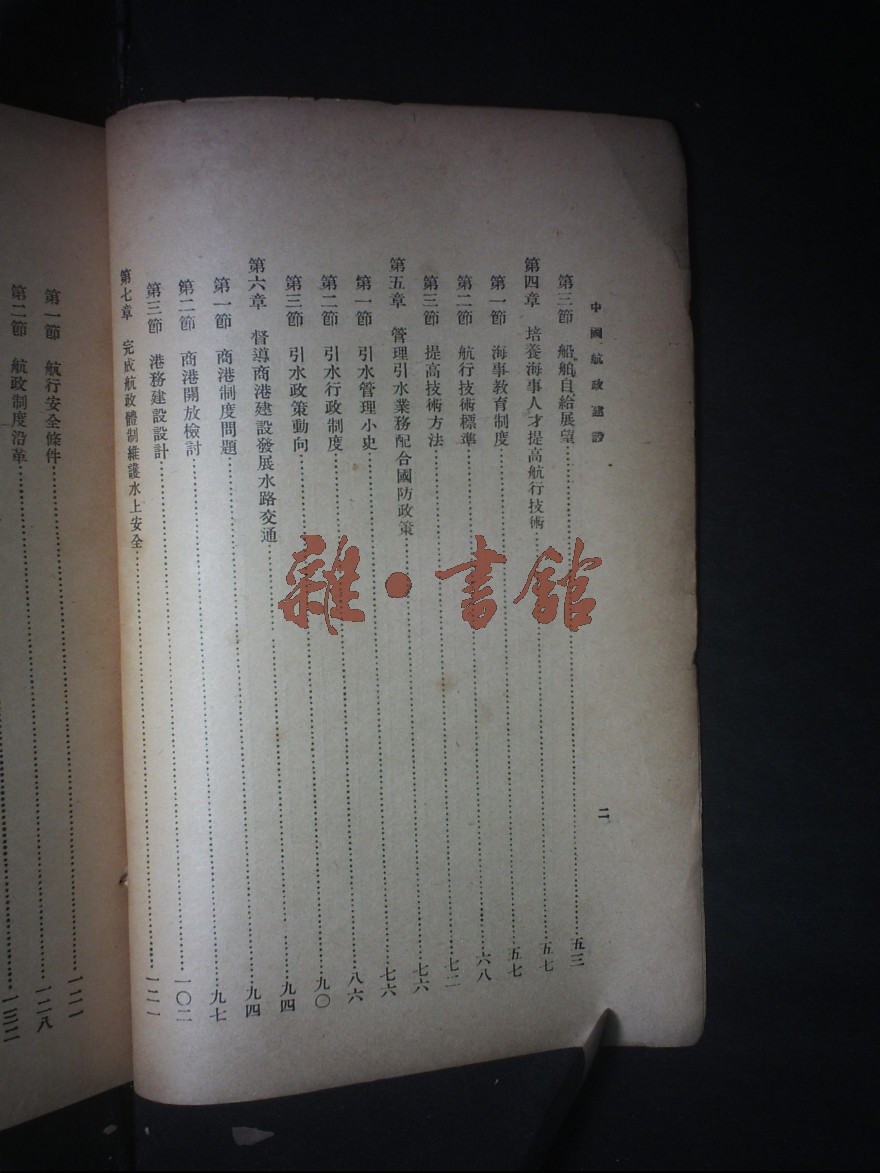 中國航政建設 二
第三節 船舶自給展望……五三
第四章 培養海事人才提高航行技術……五七
第一節 海事教育制度……五七
第二節 航行技術標準……六八
第三節 提高技術方法……七二
第五章 管理引水業務配合國防政策……七六
第一節 引水管理小史……七六
第二節 引水行政制度……八六
第三節 引水政策動向……九〇
第六章 督導商港建設發展水路交通……九四
第一節 商港制度問題……九四
第二節 商港開放檢討……九七
第三節 港務建設設計……一〇二
第七章 完成航政體制維護水上安全……一二一
第一節 航行安全條件……一二一
第二節 航政制度沿革……一二八
……一三二
雜·書館